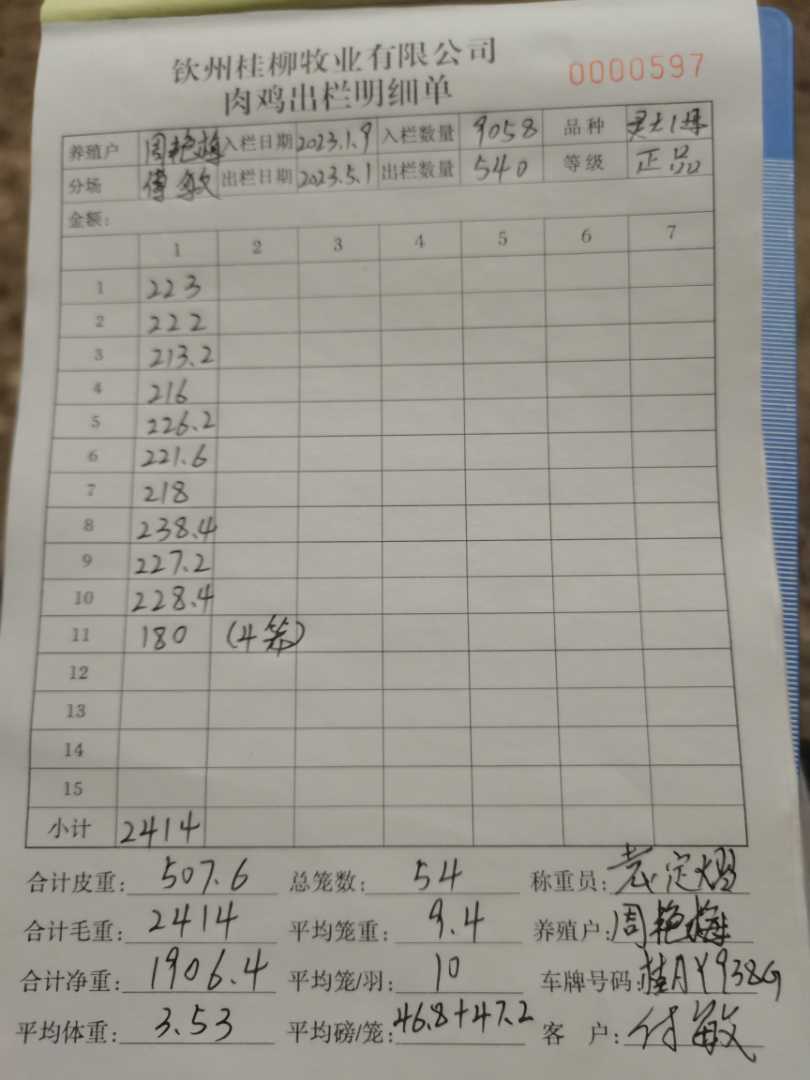 钦州桂柳牧业有限公司
肉鸡出栏明细单
0000597
养殖户 周艳梅 入栏日期 2023.1.9 入栏数量 9058 品种
分场 傅敏 出栏日期 2023.5.1 出栏数量 540 等级 正品
金额:
1 2 3 4 5 6 7
1 223
2 222
3 213.2
4 216
5 226.2
6 221.6
7 218
8 238.4
9 227.2
10 228.4
11 180 (4笼)
12
13
14
15
小计 2414
合计皮重: 507.6 总笼数: 54 称重员:
合计毛重: 2414 平均笼重: 9.4 养殖户: 周艳梅
合计净重: 1906.4 平均笼/羽: 10 车牌号码: 桂AY938G
平均体重: 3.53 平均磅/笼: 46.8+47.2 客户: 付敏